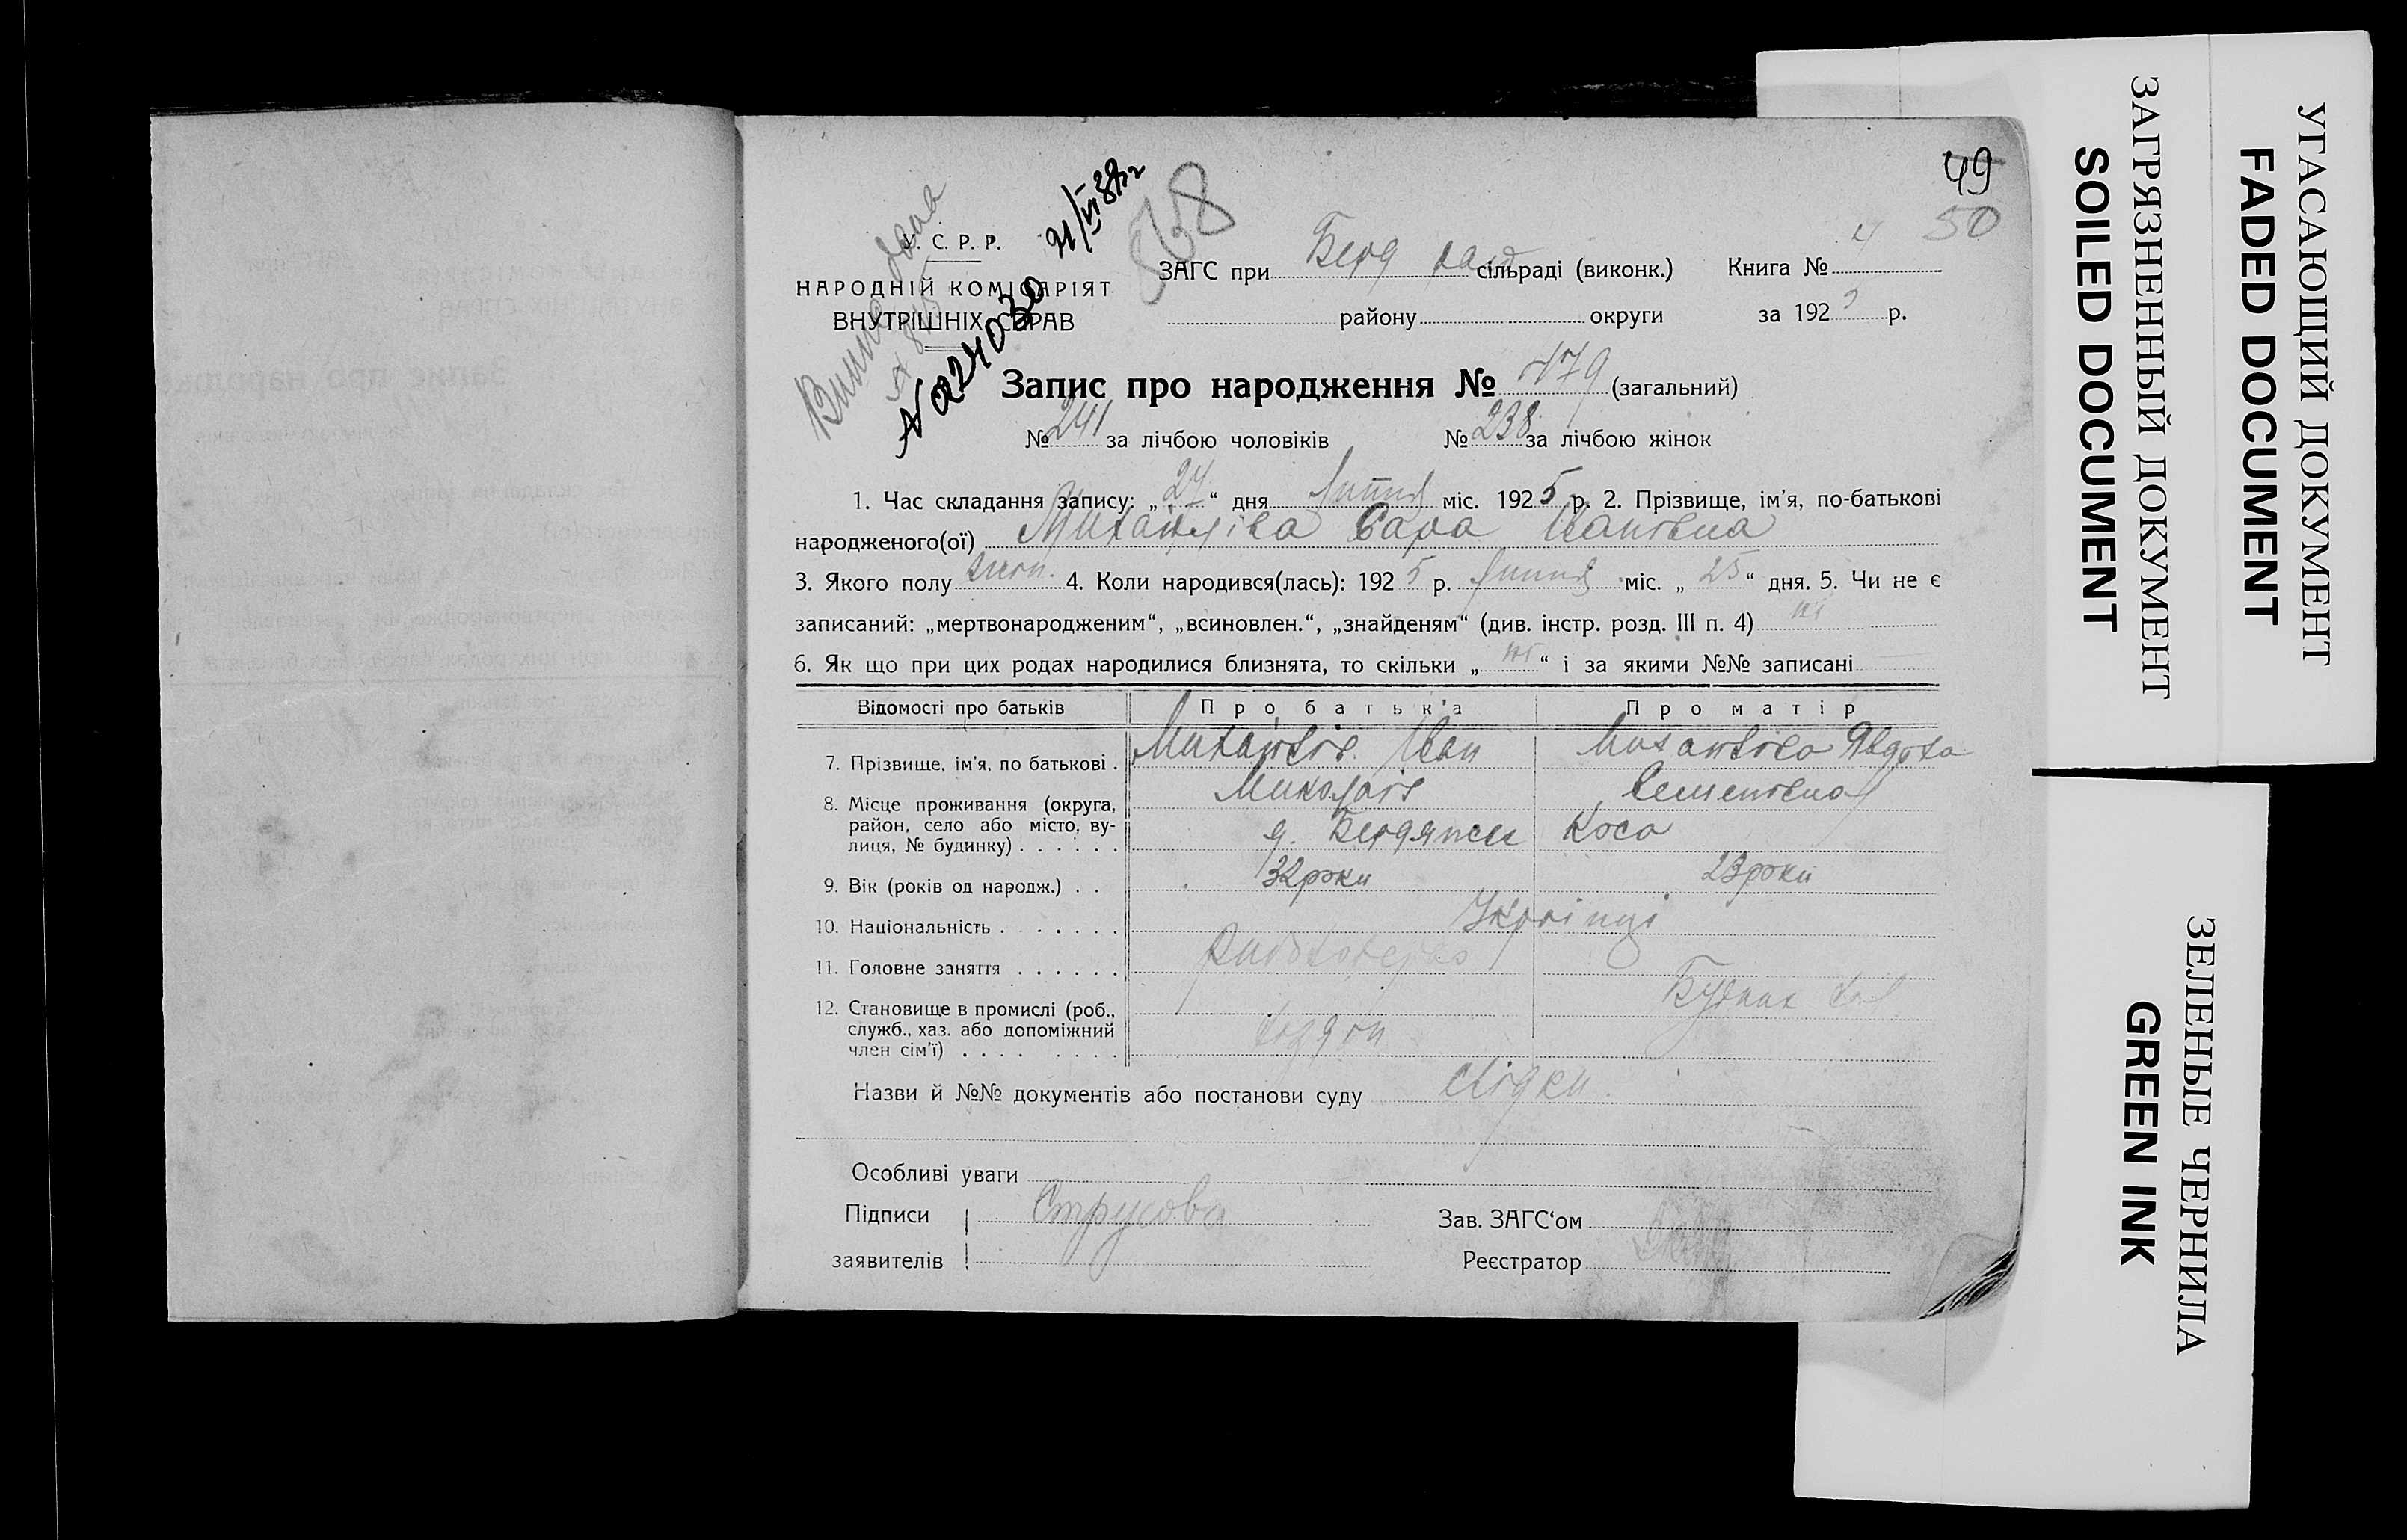 49
50
Виписано
21/VI 38 р
У. С. Р. Р.
НАРОДНІЙ КОМІСАРІЯТ
ВНУТРІШНІХ СПРАВ
ЗАГС при Берд сільраді (виконк.) Книга № 4
району округи за 192 р.
Запис про народження № 479 (загальний)
№ 241 за лічбою чоловіків № 238 за лічбою жінок
1. Час складання запису: „ 24 “ дня липня міс. 1925 р. 2. Прізвище, ім'я, по-батькові
народженого(ої) Михайлова Івановна
3. Якого полу 4. Коли народився(лась): 1925 р. липня міс. „ 25 “ дня. 5. Чи не є
записаний: „мертвонародженим“, „всиновлен.“, „знайденям“ (див. інстр. розд. III п. 4) ні
6. Як що при цих родах народилися близнята, то скільки „ ні “ і за якими №№ записані
Відомості про батьків Про батька Про матір
7. Прізвище, ім'я, по батькові . Іван Явдоха
Миколаїв Семеновна
8. Місце проживання (округа,
район, село або місто, ву-
лиця, № будинку) . . . . . . Коса
9. Вік (років од народж.) . . 32 роки 23 роки
10. Національність . . . . . . Українці
11. Головне заняття . . . . . .
12. Становище в промислі (роб.,
служб., хаз. або допоміжний
член сім'ї) . . . . . . . .
Назви й №№ документів або постанови суду свідки
Особливі уваги
Підписи Струсова Зав. ЗАГС'ом
заявителів Реєстратор
УГАСАЮЩИЙ ДОКУМЕНТ
FADED DOCUMENT
ЗАГРЯЗНЕННЫЙ ДОКУМЕНТ
SOILED DOCUMENT
ЗЕЛЕНЫЕ ЧЕРНИЛА
GREEN INK